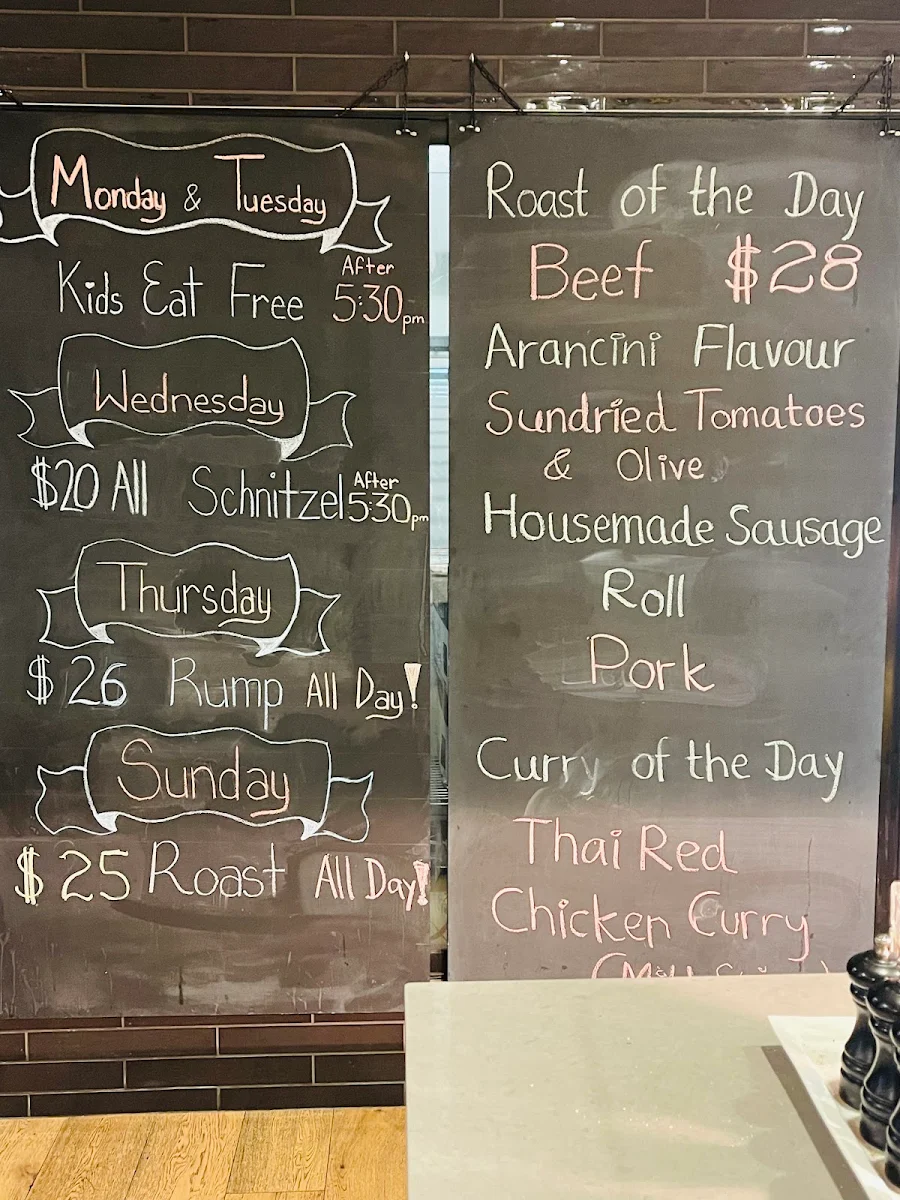 Monday & Tuesday
Kids Eat Free After 5:30pm
Wednesday
$20 All Schnitzel After 5:30pm
Thursday
$26 Rump All Day!
Sunday
$25 Roast All Day!
Roast of the Day
Beef $28
Arancini Flavour
Sundried Tomatoes
& Olive
Housemade Sausage
Roll
Pork
Curry of the Day
Thai Red
Chicken Curry